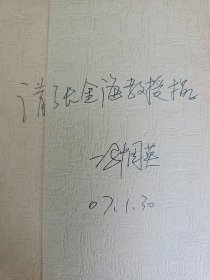 请张金海教授指正
国英
07.1.30